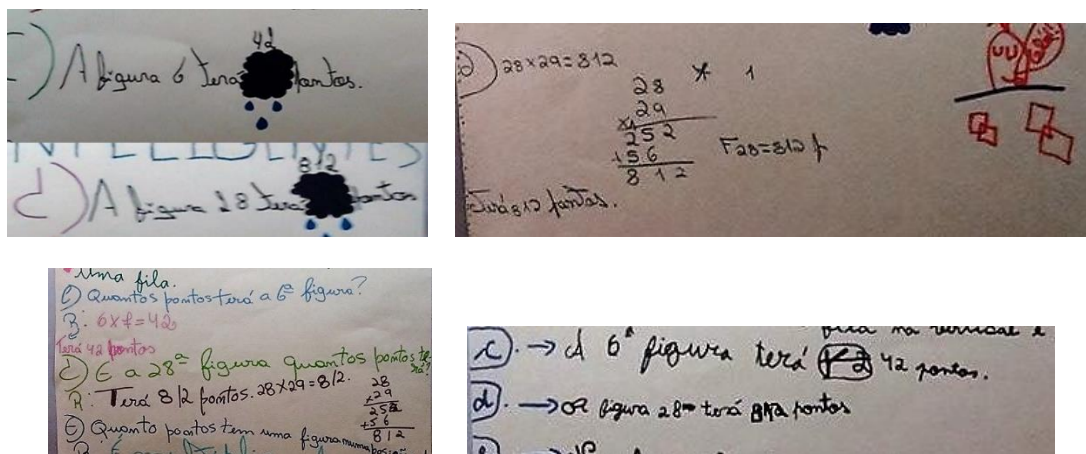 c) A figura 6 terá 42 pontos.
INTELIGENTES
d) A figura 28 terá 812 pontos
d) 28 x 29 = 812
* 1
28
29
x
252
+56
812
F28 = 812 p
Terá 812 pontos.
uma fila.
C) Quantos pontos terá a 6ª figura?
R: 6x7=42
Terá 42 pontos
d) E a 28ª figura quantos pontos terá?
R: Terá 812 pontos. 28x29=812.
28
x29
252
+56
812
E) Quanto pontos tem uma figura numa
c). → A 6ª figura terá 42 pontos.
d). → a figura 28 terá 812 pontos